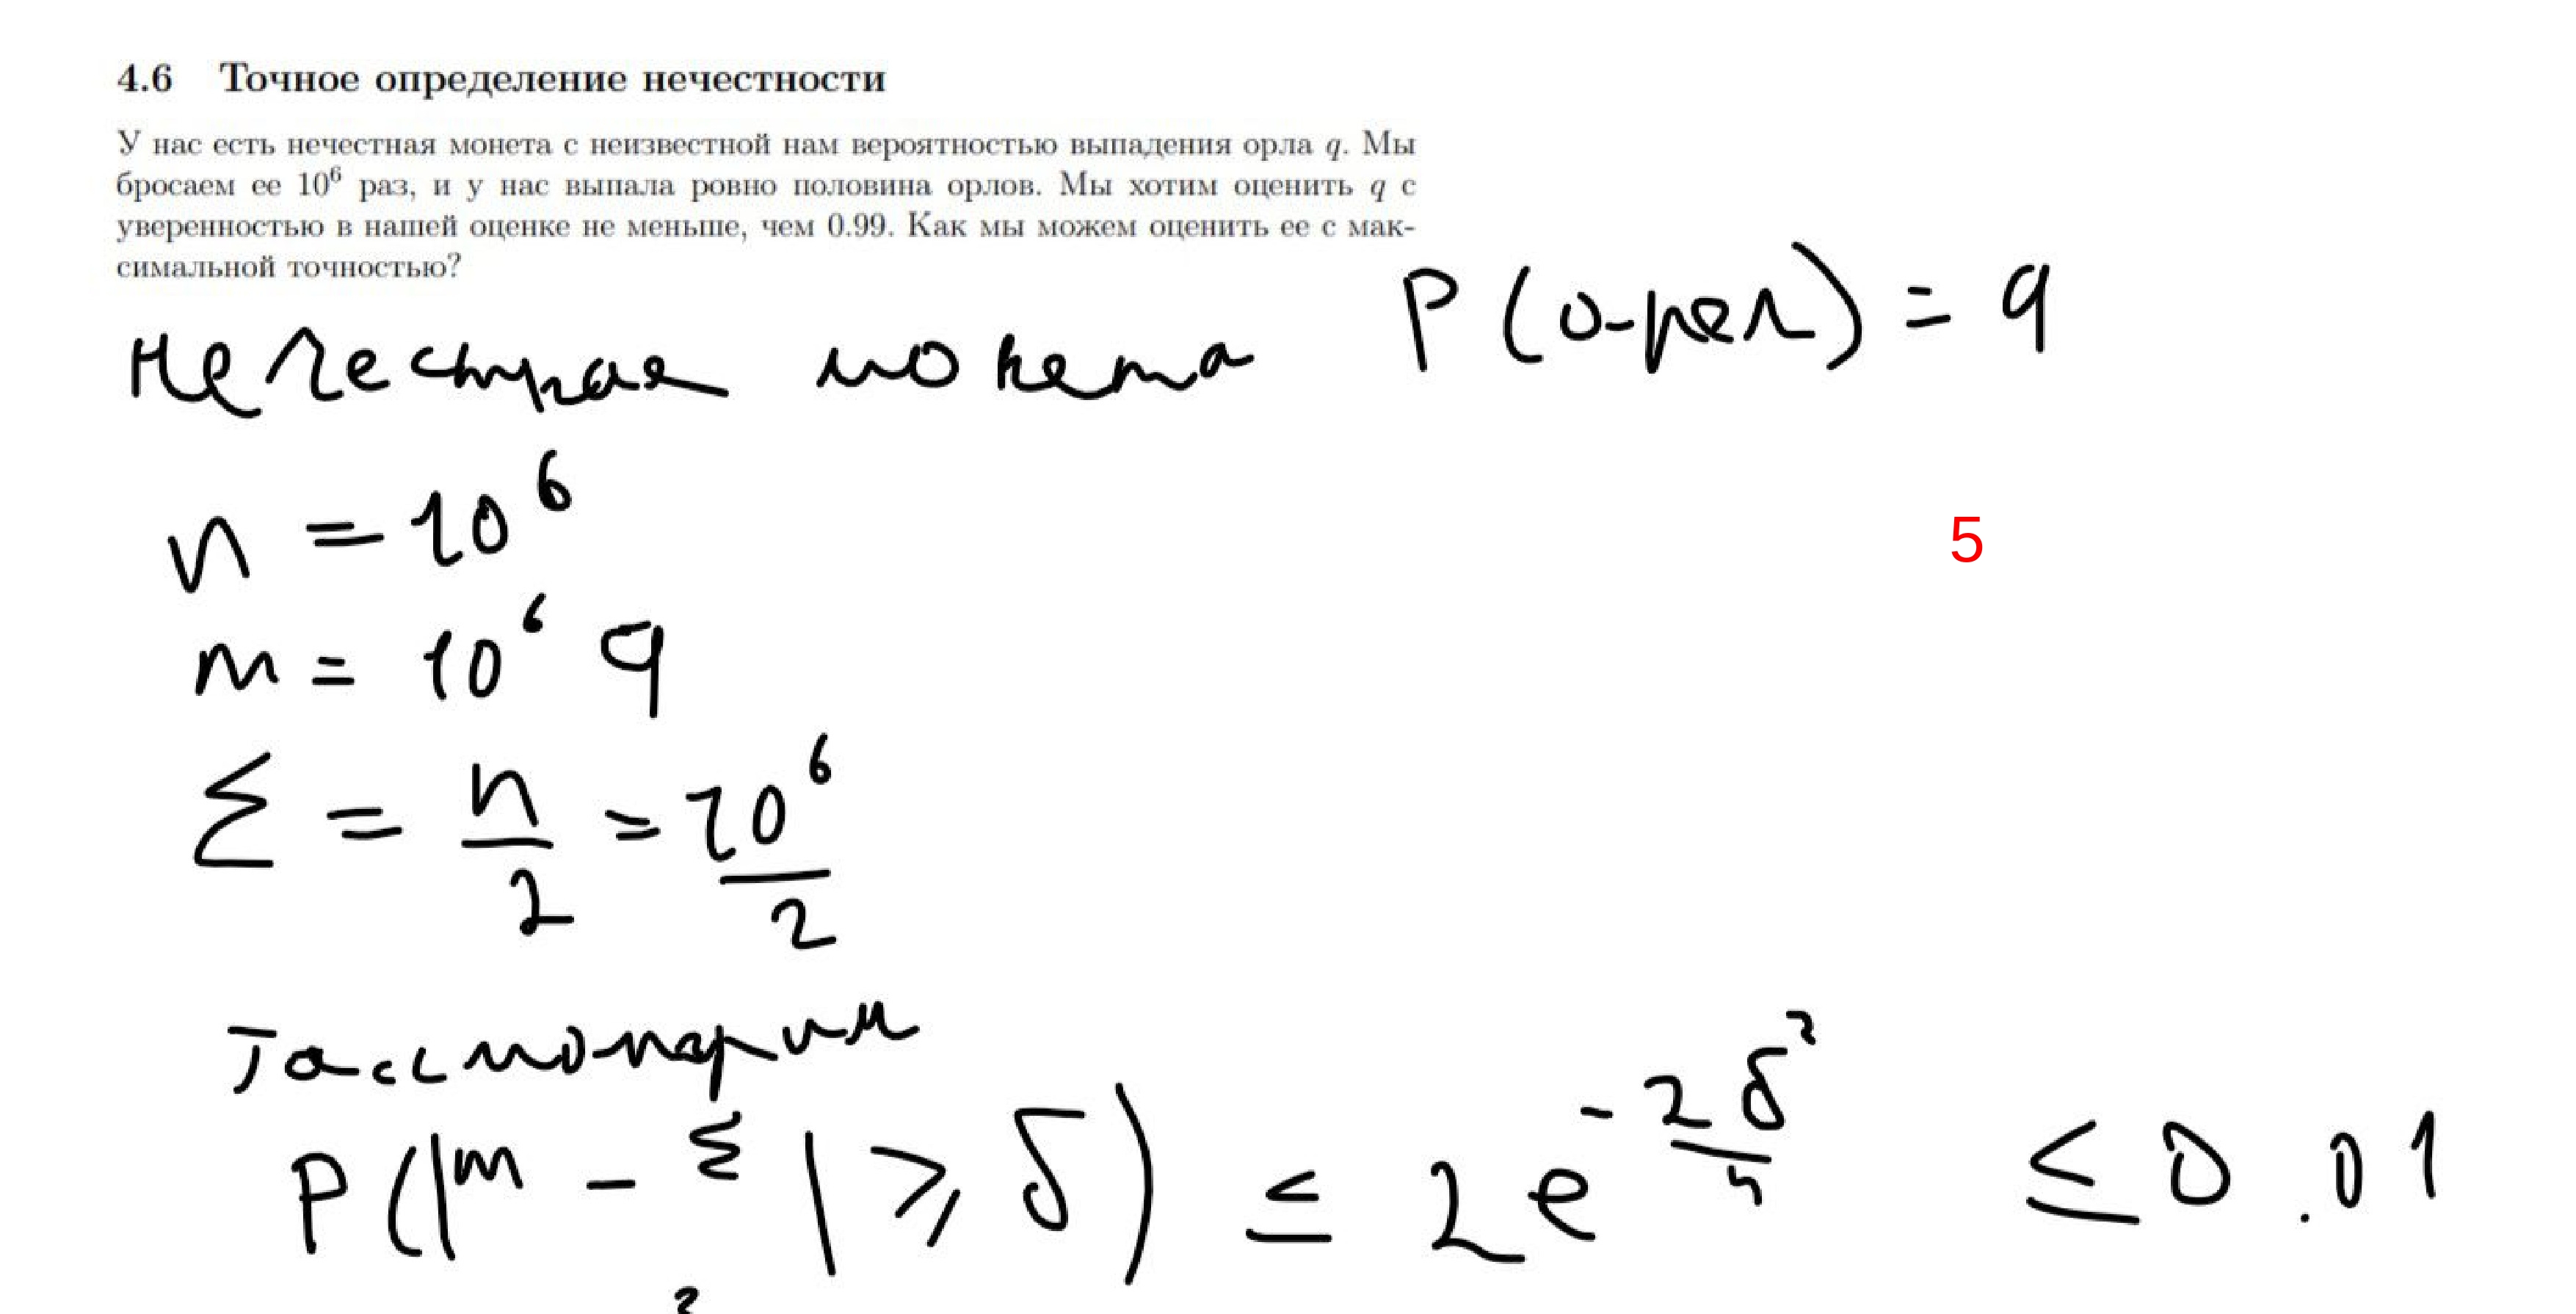 4.6 Точное определение нечестности
У нас есть нечестная монета с неизвестной нам вероятностью выпадения орла q. Мы
бросаем ее 10⁶ раз, и у нас выпала ровно половина орлов. Мы хотим оценить q с
уверенностью в нашей оценке не меньше, чем 0.99. Как мы можем оценить ее с мак-
симальной точностью?
Нечестная монета P(орел) = q
n = 10⁶
5
m = 10⁶ q
Σ = n/2 = 10⁶/2
Рассмотрим
P(|m - Σ| ⩾ δ) ≤ 2e^(-2δ²/n) ≤ 0.01